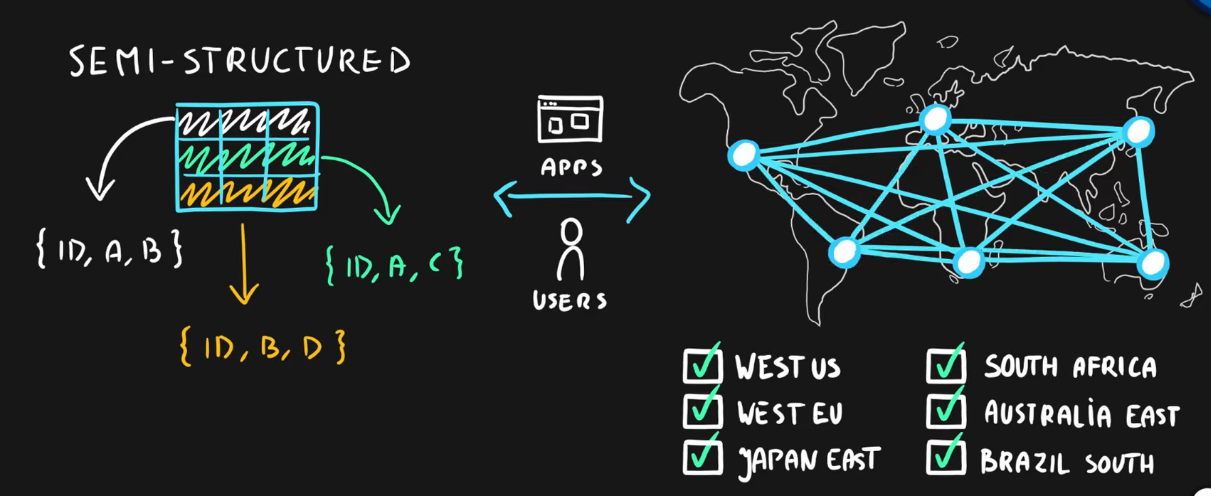 SEMI-STRUCTURED
{ID, A, B}
{ID, A, C}
{ID, B, D}
APPS
USERS
WEST US
WEST EU
JAPAN EAST
SOUTH AFRICA
AUSTRALIA EAST
BRAZIL SOUTH